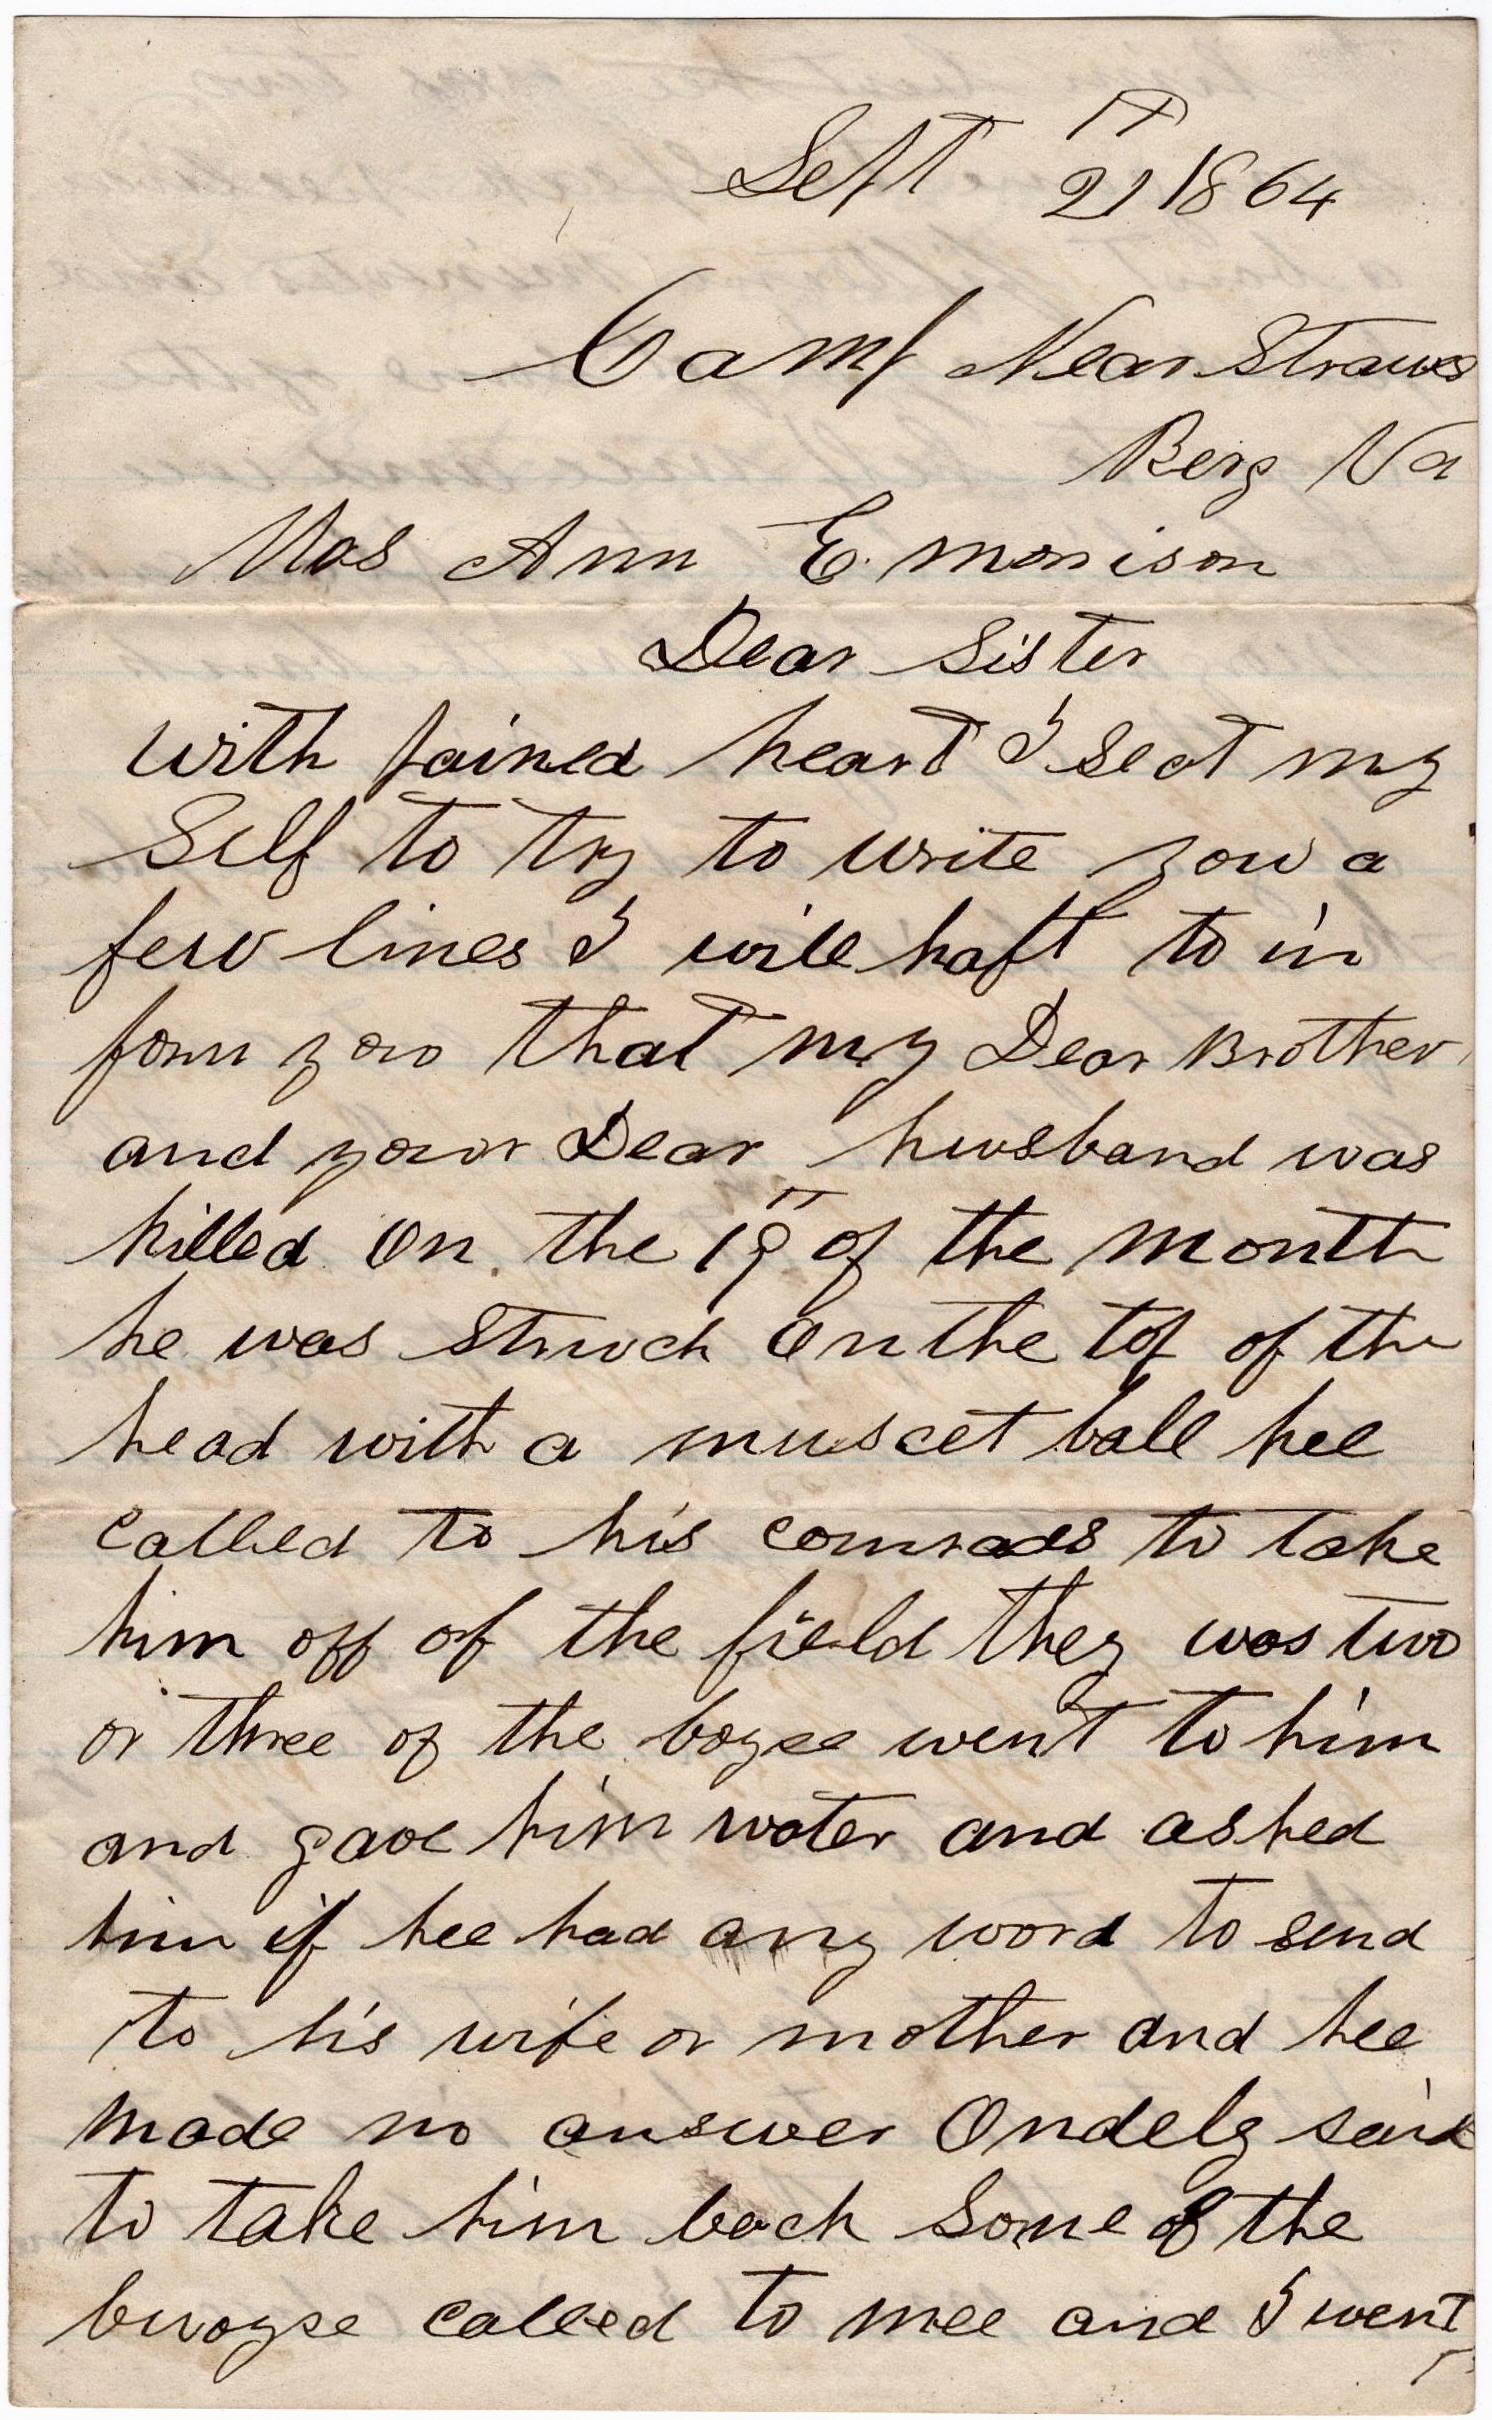 Sept 21 1864
Camp Near Straws
Berg Va
Mrs Ann E. morrison
Dear Sister
with pained heart I seat my
Self to try to write you a
few lines I will haft to in
form you that my Dear Brother
and your Dear husband was
killed on the 19 of the month
he was struck on the top of the
head with a muscet ball hee
called to his comrads to take
him off of the field they was two
or three of the boyse went to him
and gave him woter and asked
him if hee had any word to send
to his wife or mother and hee
made no answer Ondely said
to take him back Some of the
buoyse called to mee and I went